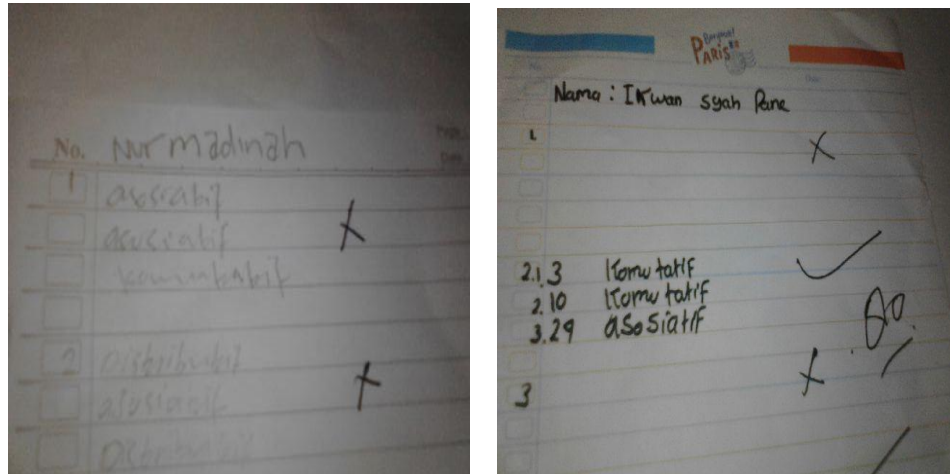 No. Nur madinah
1 asosiatif
asusiatif
komutatif
2 Distributif
asosiatif
Distributif
Bonjour!
PARIS
Nama : Ikwan syah Pane
1.
2.1.3 komutatif
2.10 komutatif
3.29 asosiatif
3